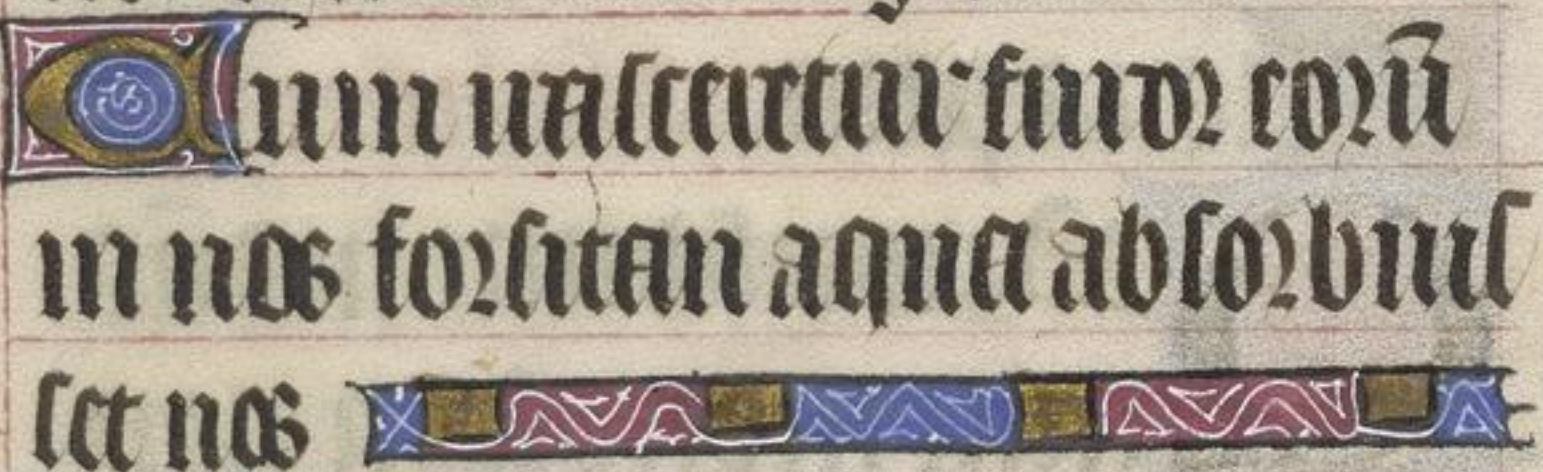 Cum nasceretur furor eorū
in nos forsitan aqua absorbuis
set nos